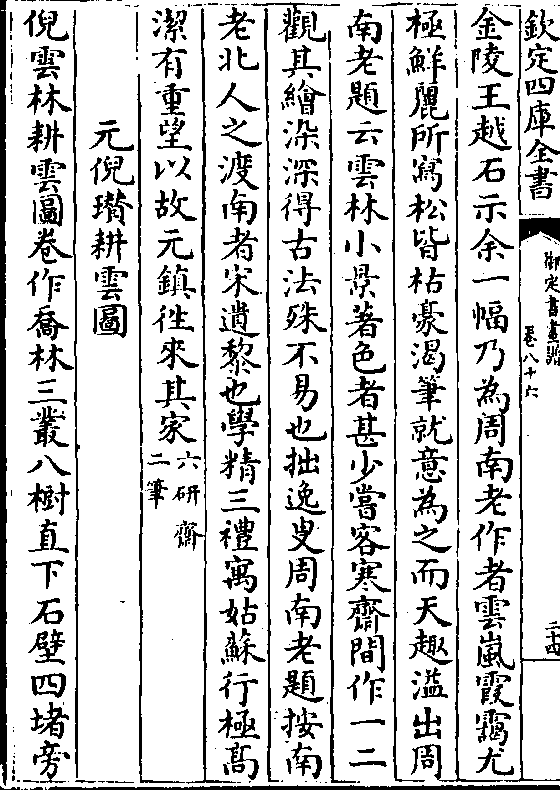 欽定四庫全書
御定書畫譜
卷八十六
二十四
金陵王越石示余一幅乃為周南老作者雲嵐霞靄尤
極鮮麗所寫松皆枯豪渴筆就意為之而天趣溢出周
南老題云雲林小景著色者甚少嘗客寒齋間作一二
觀其繪染深得古法殊不易也拙逸叟周南老題按南
老北人之渡南者宋遺黎也學精三禮寓姑蘇行極高
潔有重望以故元鎮往來其家六研齋二筆
元倪瓚耕雲圖
倪雲林耕雲圖卷作喬林三叢八樹直下石壁四堵旁